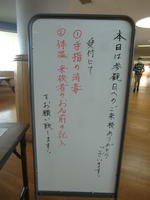 本日は参観日へのご来校ありがとう
ございます。
受付にて
①手指の消毒
②体温、来校者のお名前の記入
をお願い致します。